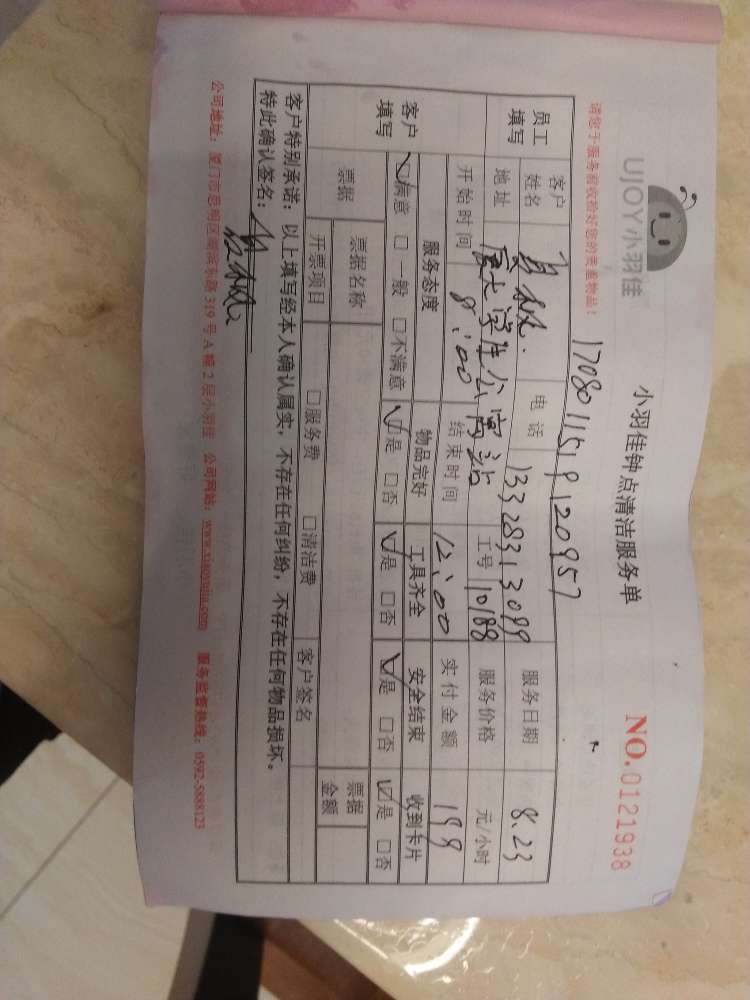 UJOY小羽佳
小羽佳钟点清洁服务单
NO.0121938
请您于服务前收拾好您的贵重物品!
170801151912095
员工填写
客户姓名
电话 13328313099
服务日期 8.23
地址 厦大学生公寓站
工号 10188
服务价格 元/小时
开始时间 8:00
结束时间 12:00
实付金额 199
客户填写
服务态度 物品完好 工具齐全 安全结束 收到卡片
☑满意 □一般 □不满意 ☑是 □否 ☑是 □否 ☑是 □否 ☑是 □否
票据 票据名称 票据金额
开票项目 □服务费 □清洁费 客户签名
客户特别承诺:以上填写经本人确认属实,不存在任何纠纷,不存在任何物品损坏。
特此确认签名:
公司地址:厦门市思明区湖滨东路319号A幢2层小羽佳 公司网站:www.xiaoyujia.com 服务监督热线:0592-5888123